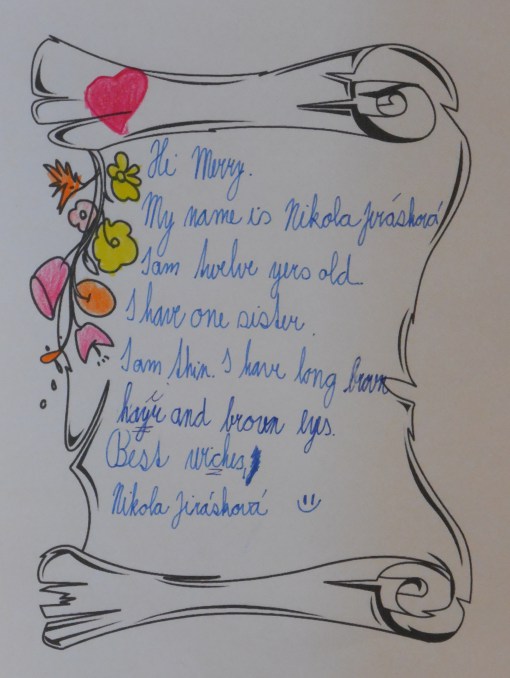 Hi Merry.
My name is Nikola Jirásková
I am twelve yers old.
I have one sister.
I am thin. I have long brown
and brown eyes.
Best wiches,
Nikola Jirásková